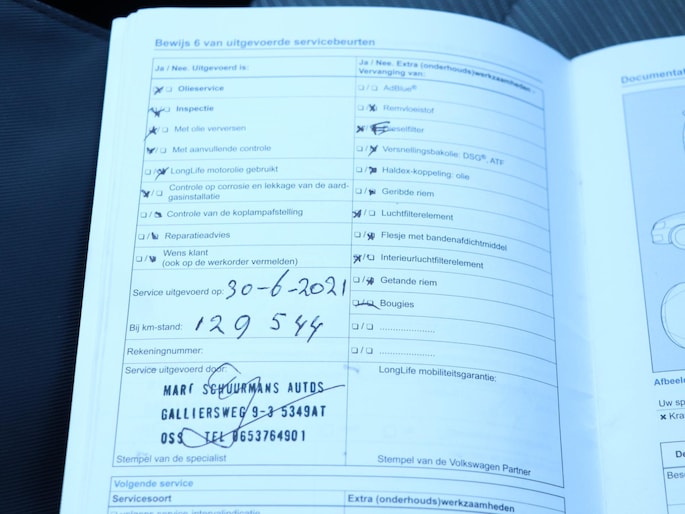 Bewijs 6 van uitgevoerde servicebeurten
Ja / Nee. Uitgevoerd is:
Olieservice
Inspectie
Met olie verversen
Met aanvullende controle
LongLife motorolie gebruikt
Controle op corrosie en lekkage van de aard-
gasinstallatie
Controle van de koplampafstelling
Reparatieadvies
Wens klant
(ook op de werkorder vermelden)
Service uitgevoerd op: 30-6-2021
Bij km-stand: 129 544
Rekeningnummer:
Service uitgevoerd door:
MARC SCHUURMANS AUTOS
GALLIERSWEG 9-3 5349AT
OSS TEL 0653764901
Stempel van de specialist
Ja / Nee. Extra (onderhouds)werkzaamheden -
Vervanging van:
AdBlue®
Remvloeistof
Versnellingsbakolie: DSG®, ATF
Haldex-koppeling: olie
Geribde riem
Luchtfilterelement
Flesje met bandenafdichtmiddel
Interieurluchtfilterelement
Getande riem
Bougies
LongLife mobiliteitsgarantie:
Stempel van de Volkswagen Partner
Volgende service
Servicesoort
Extra (onderhouds)werkzaamheden
Documentat
Afbeeln
Uw sp
× Kra
De
Besc